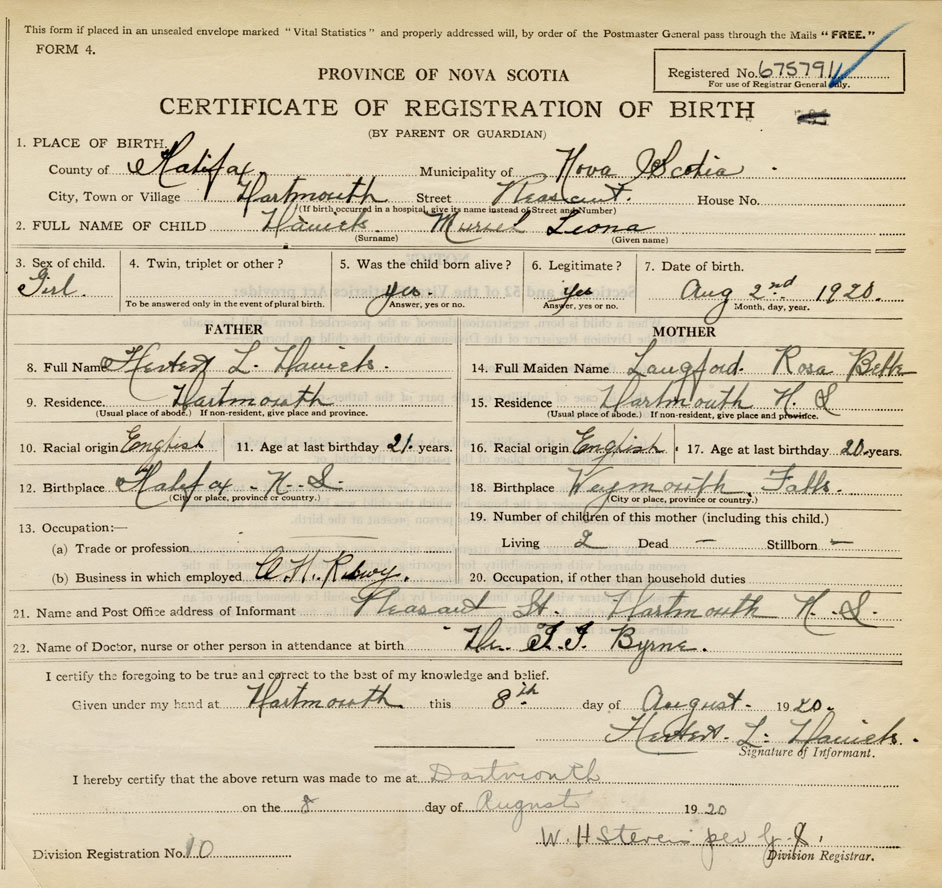 This form if placed in an unsealed envelope marked "Vital Statistics" and properly addressed will, by order of the Postmaster General pass through the Mails "FREE."
FORM 4.
Registered No. 675791
For use of Registrar General only.
PROVINCE OF NOVA SCOTIA
CERTIFICATE OF REGISTRATION OF BIRTH
(BY PARENT OR GUARDIAN)
1. PLACE OF BIRTH.
County of Halifax Municipality of Nova Scotia
City, Town or Village Dartmouth Street Pleasant. House No.
(If birth occurred in a hospital, give its name instead of Street and Number)
2. FULL NAME OF CHILD Muriel Leona
(Surname) (Given name)
3. Sex of child. 4. Twin, triplet or other? 5. Was the child born alive? 6. Legitimate? 7. Date of birth.
Girl. yes yes Aug 2nd 1920.
To be answered only in the event of plural birth. Answer, yes or no. Answer, yes or no. Month, day, year.
FATHER MOTHER
8. Full Name L. 14. Full Maiden Name Langford. Rosa Belle
9. Residence. Dartmouth 15. Residence Dartmouth N. S
(Usual place of abode.) If non-resident, give place and province. (Usual place of abode.) If non-resident, give place and province.
10. Racial origin English 11. Age at last birthday 21. years. 16. Racial origin English 17. Age at last birthday 20. years.
12. Birthplace Halifax. N. S. 18. Birthplace Weymouth Falls.
(City or place, province or country.) (City or place, province or country.)
13. Occupation:— 19. Number of children of this mother (including this child.)
(a) Trade or profession Living 2 Dead — Stillborn —
(b) Business in which employed 20. Occupation, if other than household duties
21. Name and Post Office address of Informant Pleasant St. Dartmouth N. S.
22. Name of Doctor, nurse or other person in attendance at birth Dr. Byrne.
I certify the foregoing to be true and correct to the best of my knowledge and belief.
Given under my hand at Dartmouth this 8th day of August. 1920.
L.
Signature of Informant.
I hereby certify that the above return was made to me at Dartmouth
on the 8 day of August 1920
W. H Stevens per
Division Registration No. 10 Division Registrar.